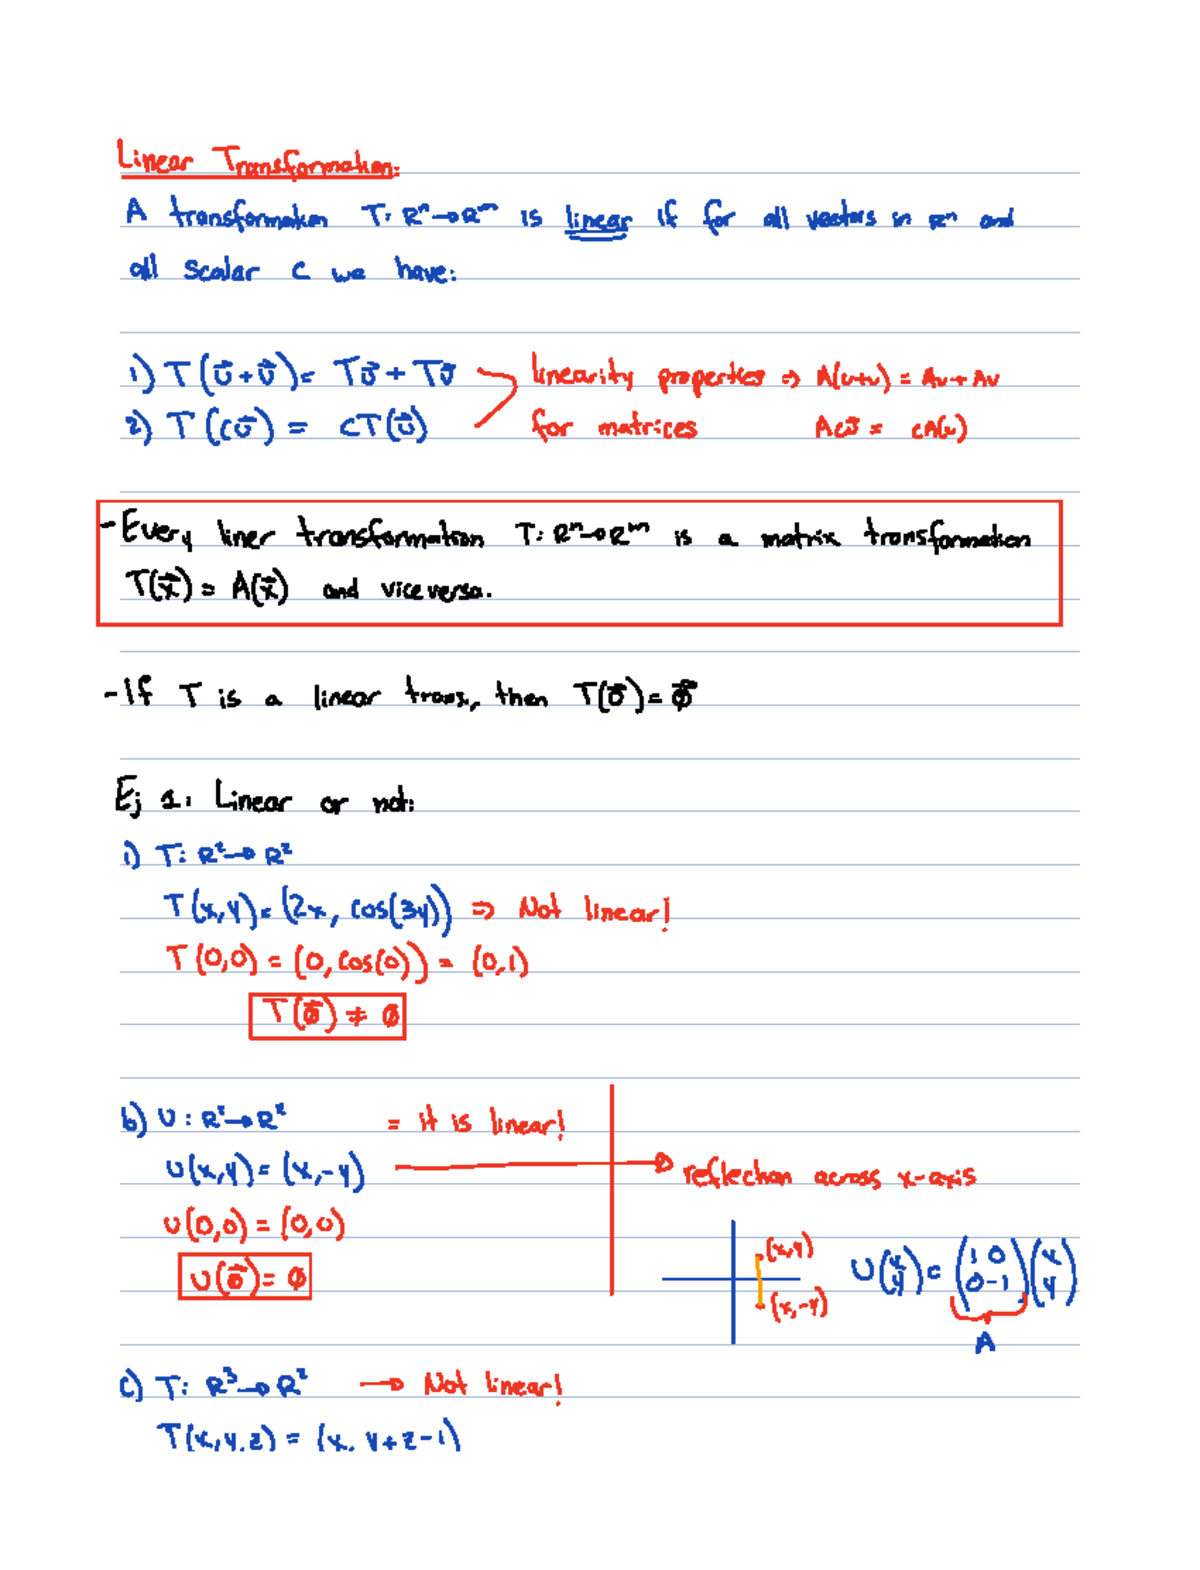 Linear Transformation:
A transformation T: R^n → R^m is linear if for all vectors in R^n and
all scalar c we have:
1) T(u⃗+v⃗) = Tu⃗ + Tv⃗
linearity properties ⇒ A(u+v) = Au + Av
2) T(cu⃗) = cT(u⃗)
for matrices Acu⃗ = cA(u)
- Every liner transformation T: R^n → R^m is a matrix transformation
T(x⃗) = A(x⃗) and viceversa.
- If T is a linear trans., then T(0⃗) = 0⃗
Ej 1: Linear or not:
1) T: R² → R²
T(x,y) = (2x, cos(3y)) ⇒ Not linear!
T(0,0) = (0, cos(0)) = (0,1)
T(0⃗) ≠ 0
b) U: R² → R² = it is linear!
U(x,y) = (x,-y) → reflection across x-axis
U(0,0) = (0,0)
U(0⃗) = 0
(x,y)
(x,-y)
U(x y) = (1 0 0 -1)(x y)
A
c) T: R³ → R² → Not linear!
T(x,y,z) = (x, y+z-1)